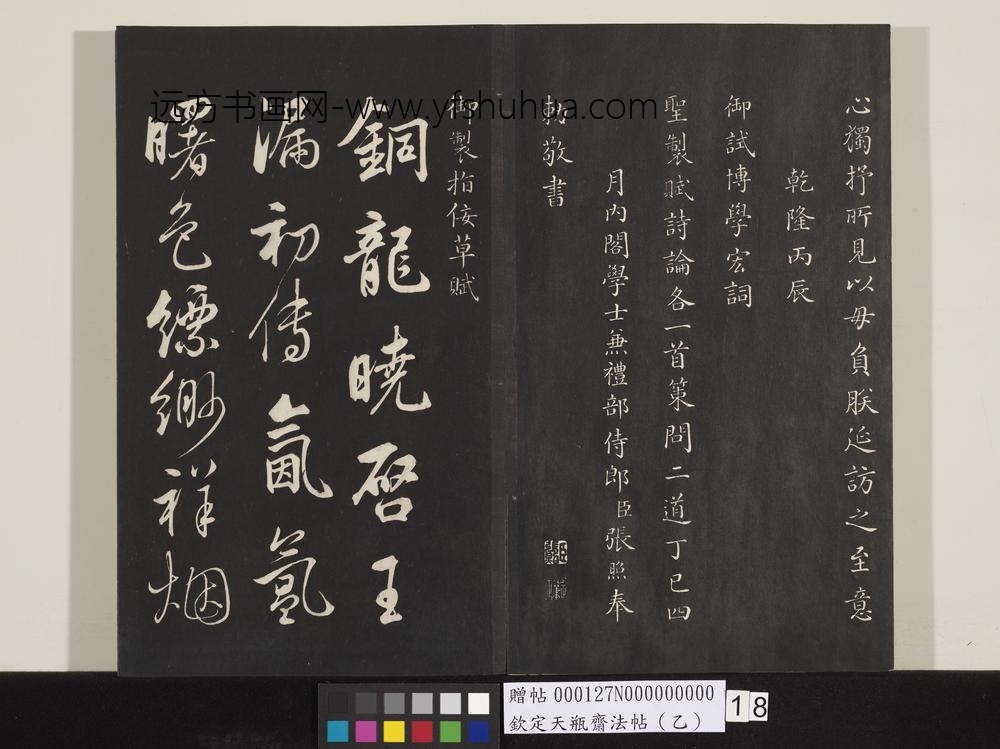 心獨抒所見以毋負朕延訪之至意
乾隆丙辰
御試博學宏詞
聖製賦詩論各一首策問二道丁巳四
月內閣學士兼禮部侍郎臣張照奉
勅敬書
御製指佞草賦
銅龍曉啓玉
漏初傳氤氳
曙色縹緲祥烟
远方书画网-www.yfshuhua.com
贈帖 000127N000000000
欽定天瓶齋法帖（乙）
18